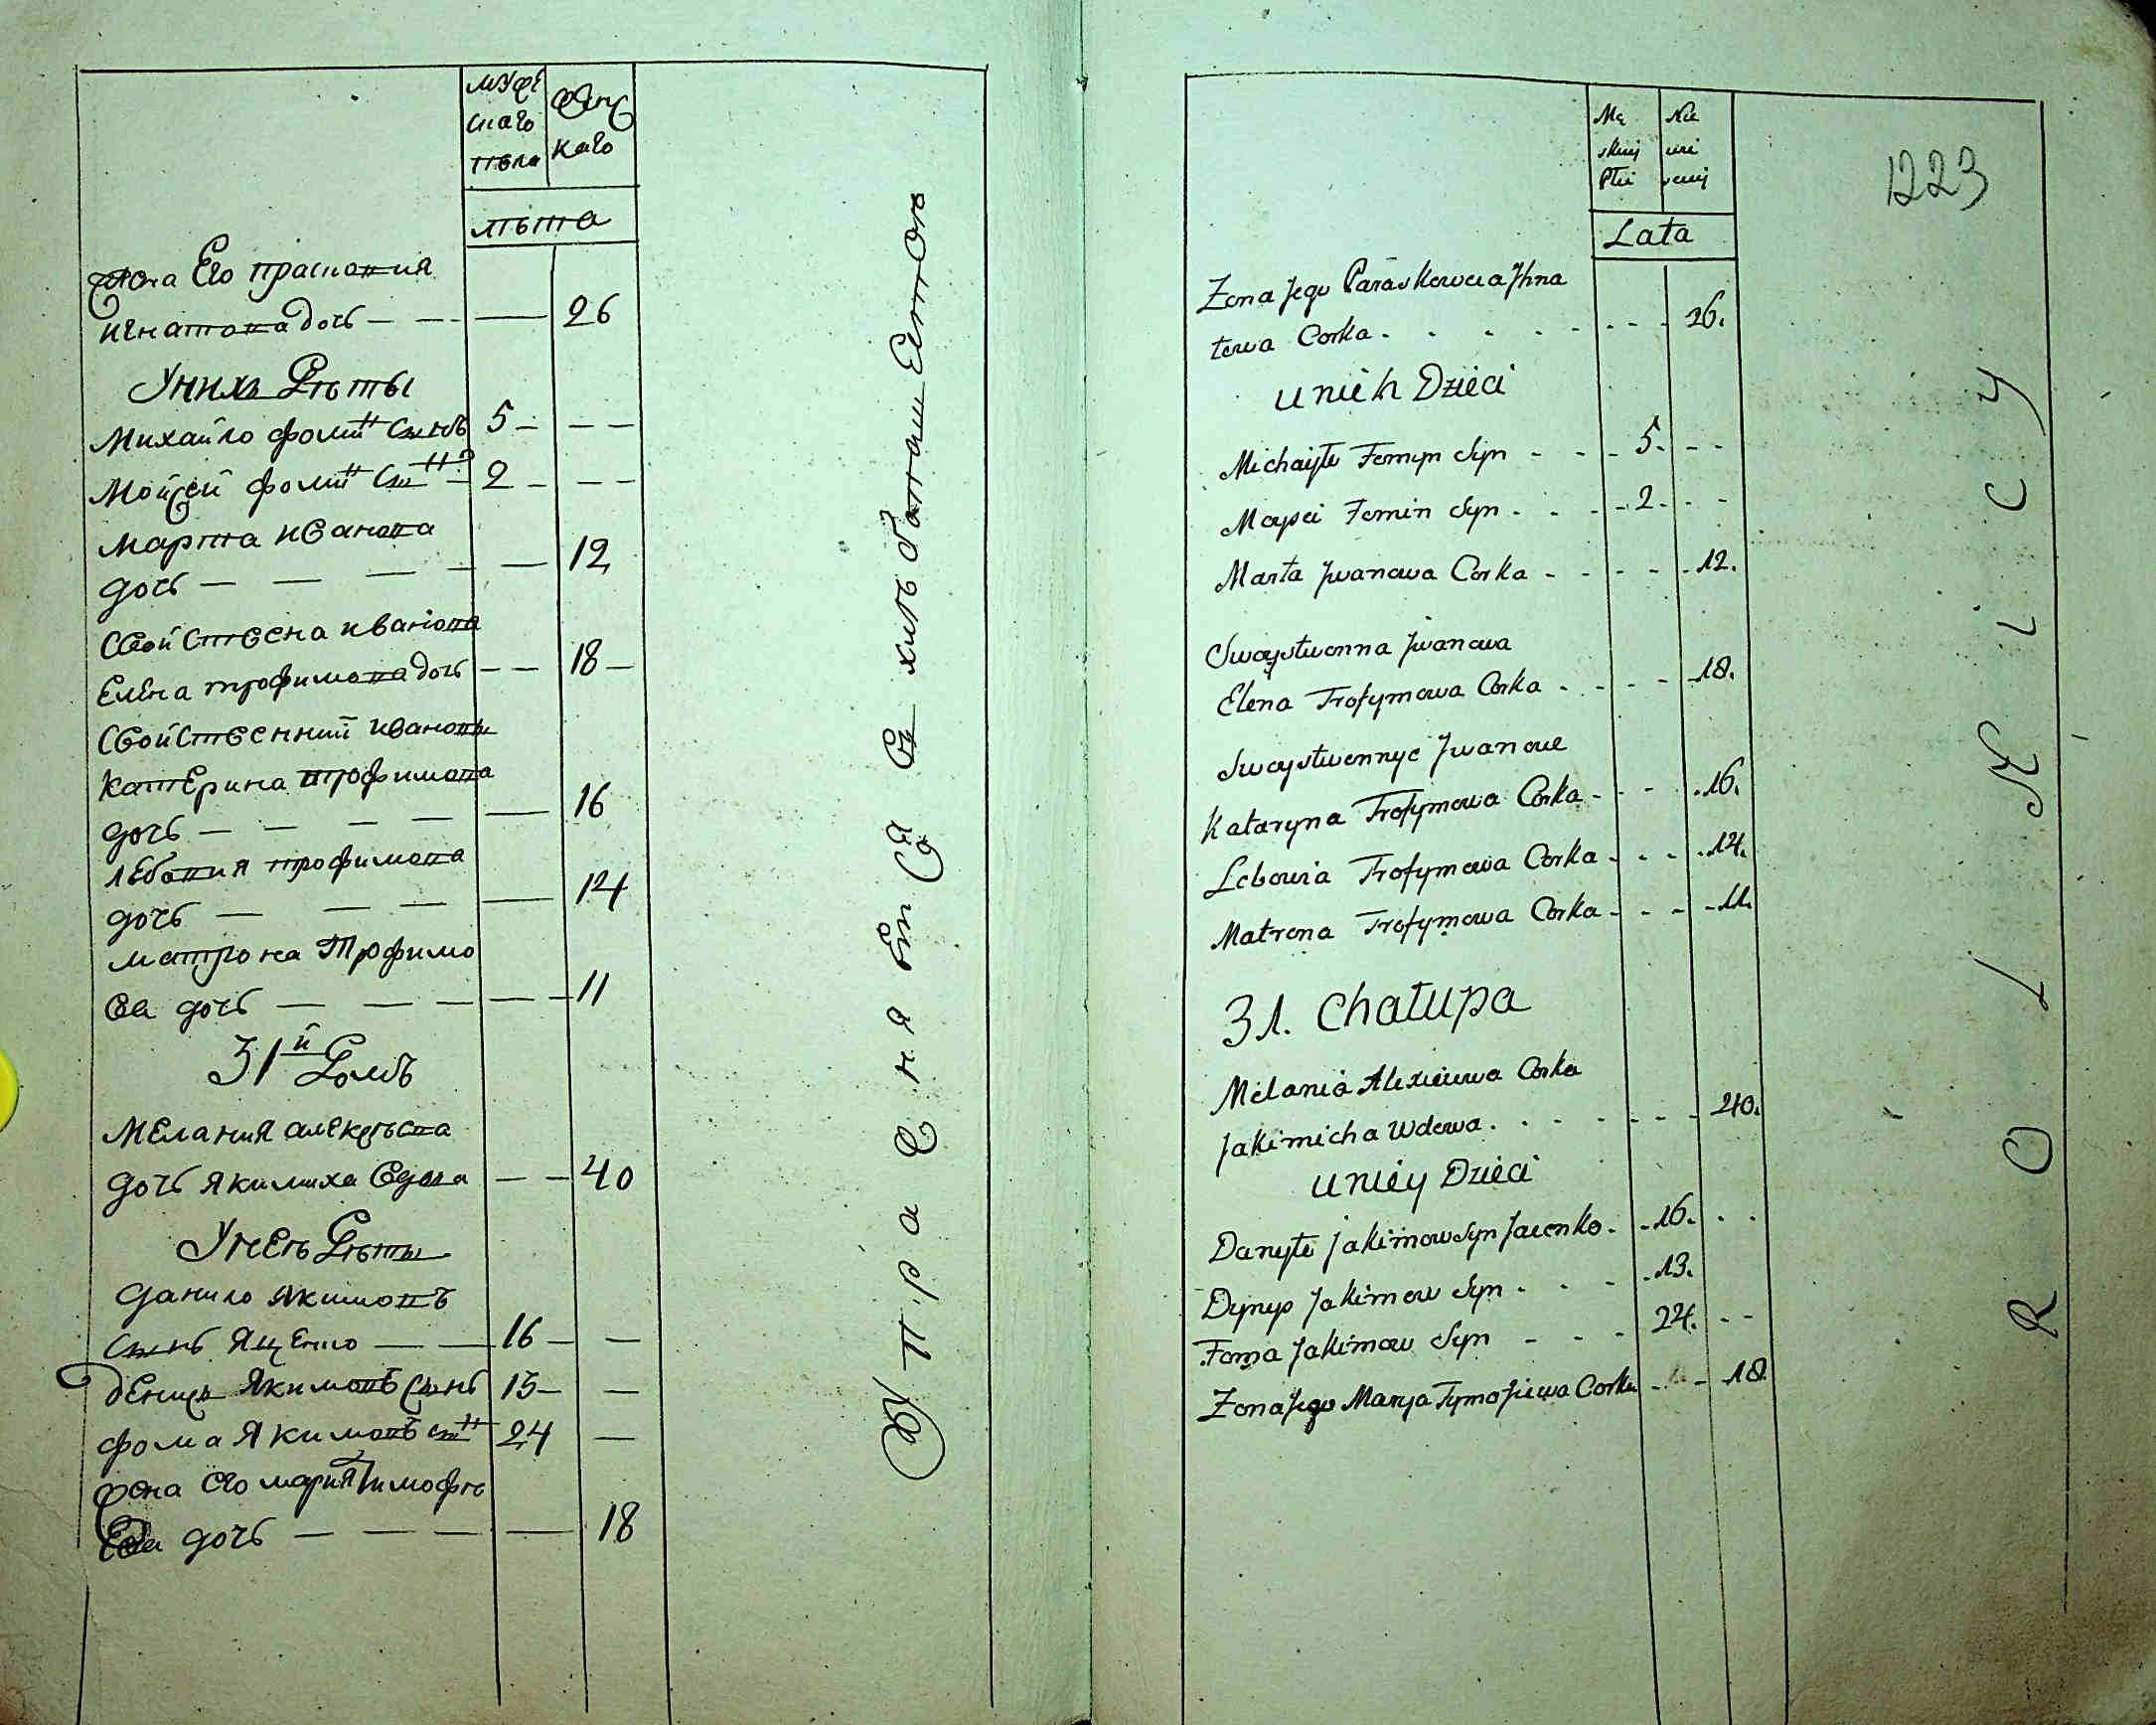 мужескаго пола
женскаго
лѣта
жена Его прасковия
игнатова дочь — — — 26
Унихъ Дѣты
Михайло фоминъ Сынъ 5 — — —
Мойсей фоминъ Сынъ — 2 — — —
Марта иванова
дочь — — — — — 12
Свойствена иванова
Елена трофимова дочь — — 18 —
Свойственний ивановы
Катерина трофимова
дочь — — — — — 16
лебовия трофимова
дочь — — — — 14
матрона Трофимо
ва дочь — — — — — 11
31й Домъ
Мелания алексѣева
дочь якимиха вдова — — 40
Унеъ Дѣты
данило якимовъ
сынъ ященко — — 16 — —
денисъ якимовъ сынъ 15 — —
фома якимовъ сынъ 24 —
жена его мария тимофѣ
Ева дочь — — — — 18
Męskiej Płci
Niewieściej
Lata
1223
Zona Jego Paraskowia Jhna
towa Corka . . . . . - - - 26.
u nich Dzieci
Michayło Fomyn Syn - - - 5. - -
Moysei Fomin Syn . . . - 2. - -
Marta Jwanowa Corka - - - - - 12.
Swoystwenna Jwanowa
Elena Trofymowa Corka . - - - 18.
Swoystwennyc Jwanowe
Kataryna Trofymowa Corka - - - . 16.
Lebowia Trofymowa Corka - - - . 14.
Matrona Trofymowa Corka - - - - 11.
31. Chałupa
Melania Alexieiewa Corka
Jakimicha Wdowa . . . . - - - 40.
u niey Dzieci
Danyło Jakimow Syn Jacenko . - 16. . .
Dynys Jakimow Syn . . - - 13.
Foma Jakimow Syn - - - 24. - -
Zona Jego Marya Tymofiewa Corka - - - 18
ROLNICY